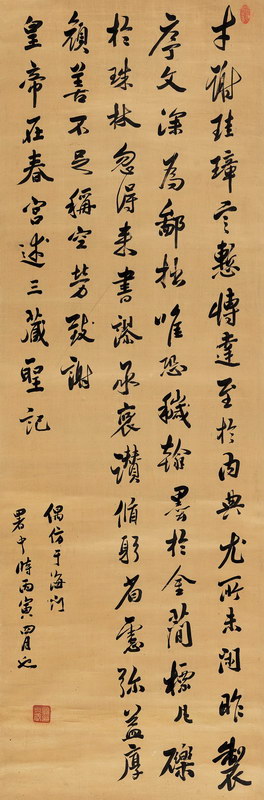 才謝珪璋言慙博達至於內典尤所未閑昨製
序文深為鄙拙唯恐穢翰墨於金簡標瓦礫
於珠林忽得來書謬承褒讚循躬省慮彌益厚
顏善不足稱空勞致謝
皇帝在春宮述三藏聖記
偶仿于海门
署中時丙寅四月也